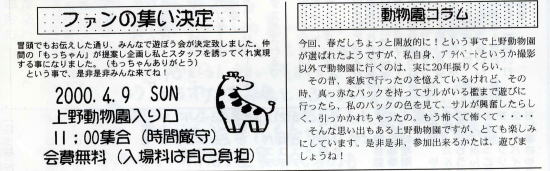 ファンの集い決定
冒頭でもお伝えした通り、みんなで遊ぼう会が決定致しました。仲
間の「もっちゃん」が提案し企画し私とスタッフを誘ってくれ実現
する事になりました。（もっちゃんありがとう）
という事で、是非是非みんな来てね！
2000.4.9 SUN
上野動物園入り口
11：00集合（時間厳守）
会費無料（入場料は自己負担）
動物園コラム
今回、春だしちょっと開放的に！という事で上野動物園
が選ばれたようですが、私自身、プライベートというか撮影
以外で動物園に行くのは、実に20年振りくらい。
その昔、家族で行ったのを憶えているけれど、その
時、真っ赤なバックを持ってサルがいる檻まで遊びに
行ったら、私のバックの色を見て、サルが興奮したらし
く、引っかかれちゃったの。もう怖くて怖くて・・・・
そんな思い出もある上野動物園ですが、とても楽しみ
にしています。是非是非、参加出来るかたは、遊びま
しょうね！